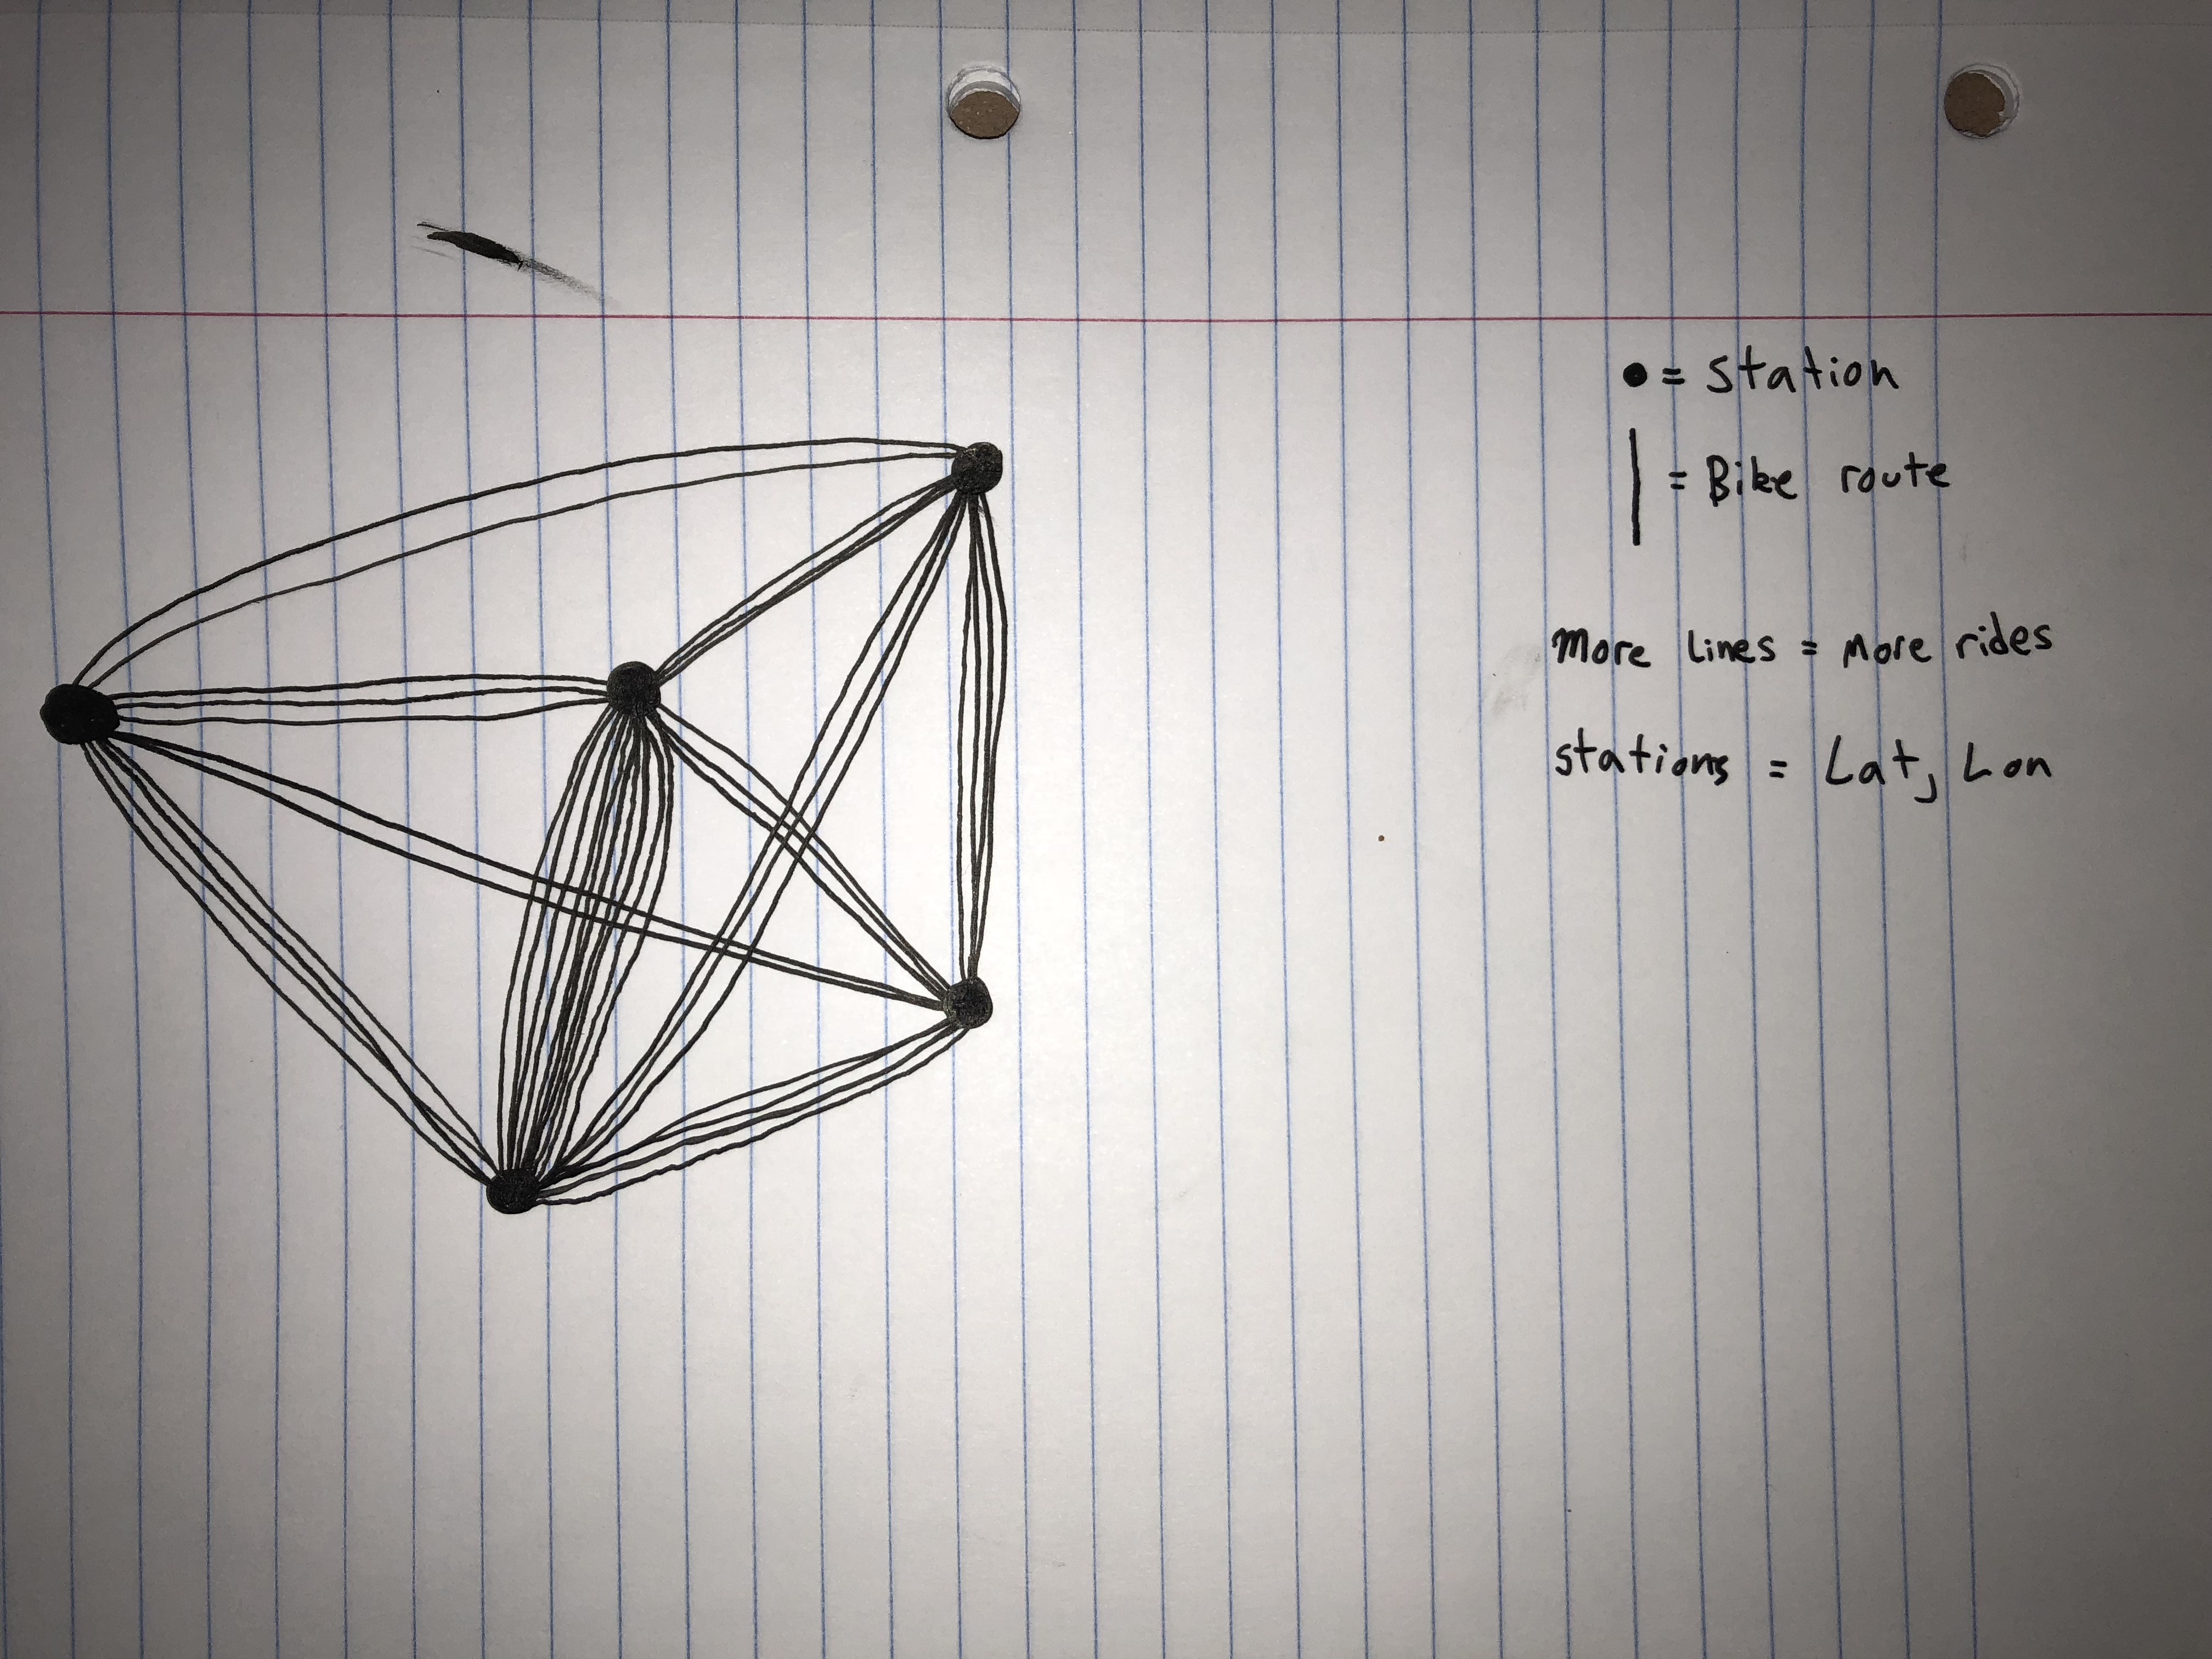 ● = Station
| = Bike route
More Lines = More rides
stations = Lat, Lon